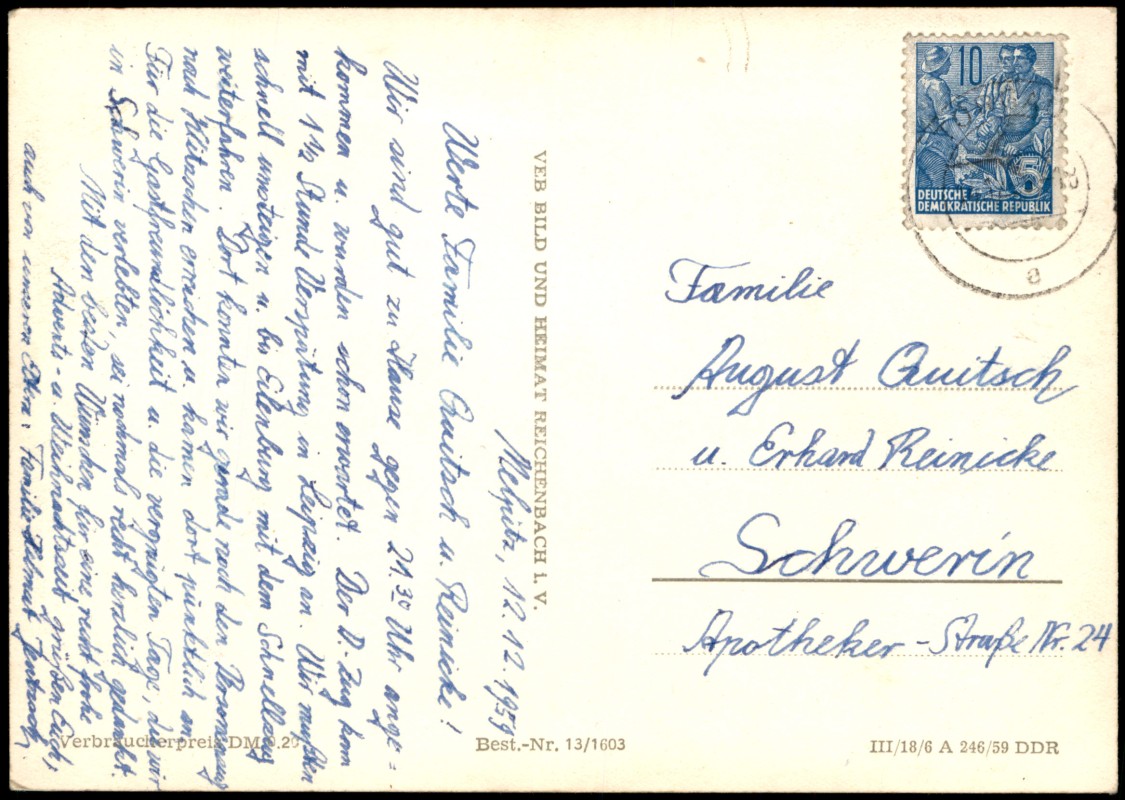 Melpitz, 12.12.1959
Werte Familie Quitsch u. Reinicke!
Wir sind gut zu Hause gegen 21.30 Uhr ange=
kommen u. wurden schon erwartet. Der D-Zug kam
mit 1 1/2 Stunde Verspätung in Leipzig an. Wir mußten
schnell umsteigen u. bis Eilenburg mit dem Schnellzug
weiterfahren. Dort konnten wir gerade noch den Personenzug
nach Klitzschen erreichen u. kamen dort pünktlich an.
Für die Gastfreundlichkeit u. die vergnügten Tage, die wir
in Schwerin verlebten, sei nochmals recht herzlich gedankt.
Mit den besten Wünschen für eine recht frohe
Advents- u. Weihnachtszeit grüßen Euch,
auch von unseren Eltern, Familie Helmut
VEB BILD UND HEIMAT REICHENBACH i. V.
10
5
DEUTSCHE
DEMOKRATISCHE REPUBLIK
a
Familie
August Quitsch
u. Erhard Reinicke
Schwerin
Apotheker-Straße Nr. 24
Verbraucherpreis DM 0.20
Best.-Nr. 13/1603
III/18/6 A 246/59 DDR